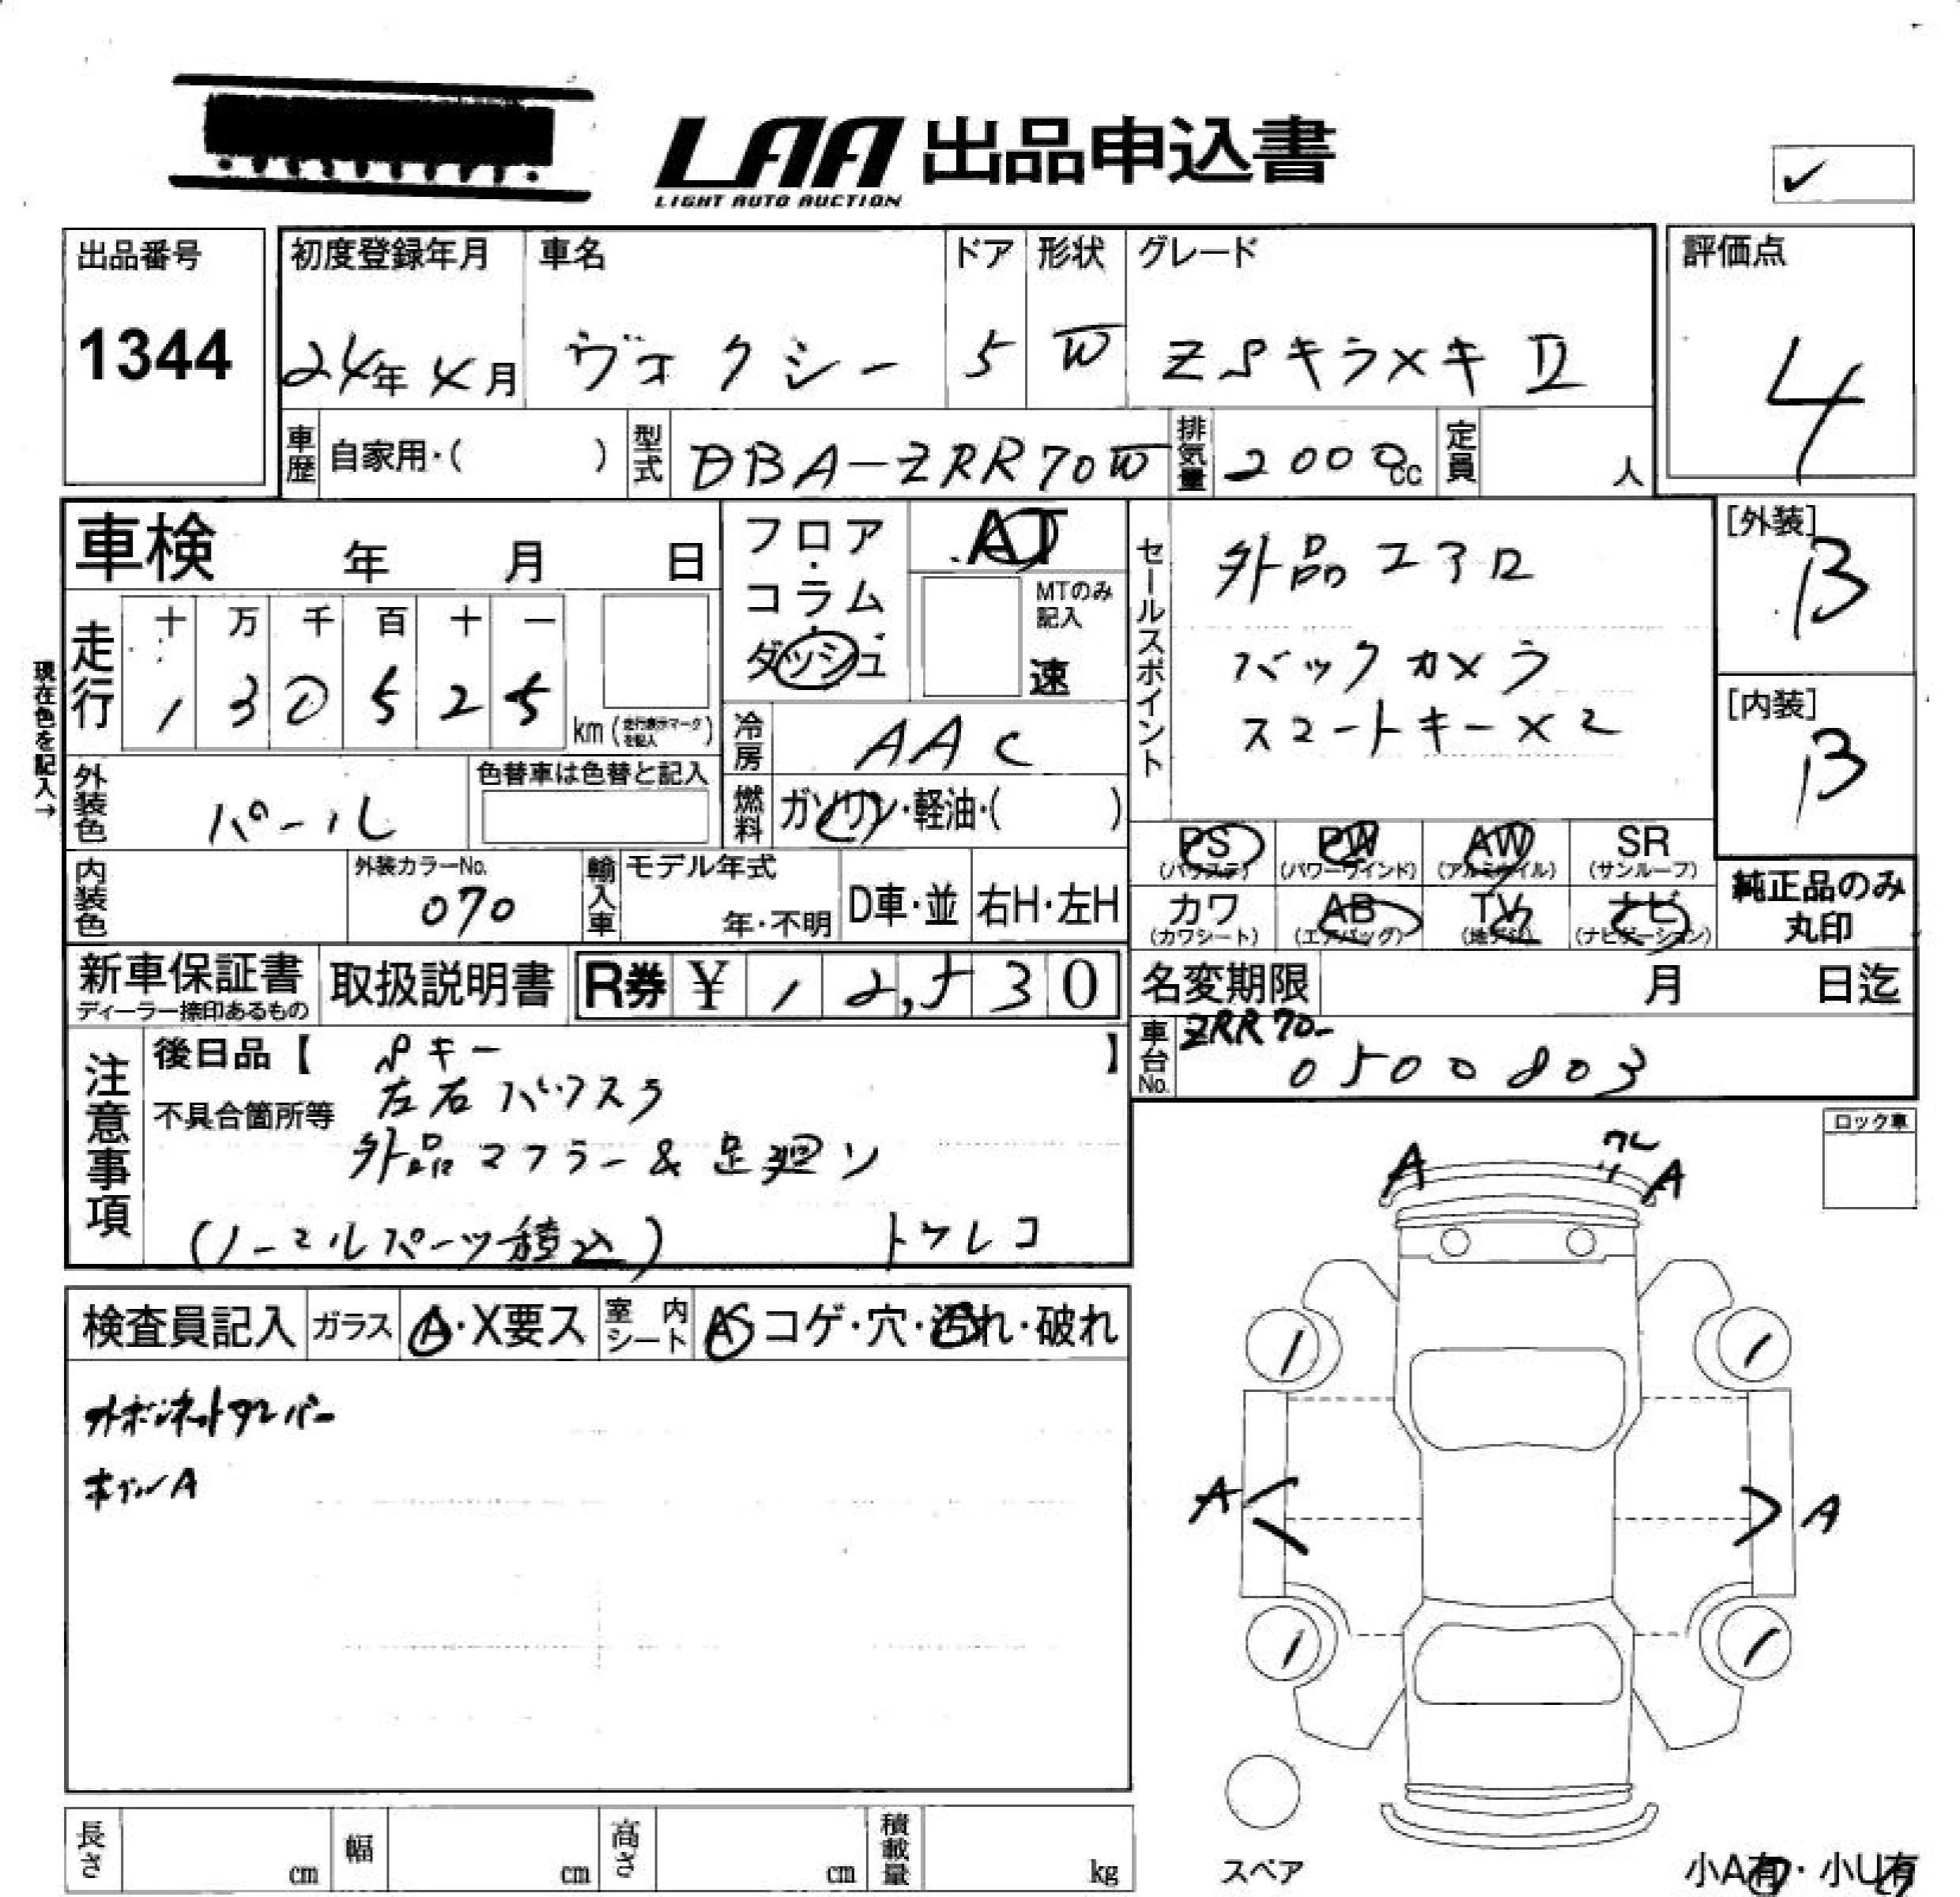 LAA 出品申込書
LIGHT AUTO AUCTION
✓
出品番号
1344
初度登録年月 車名 ドア 形状 グレード
24年4月 ヴォクシー 5 W ZSキラメキⅡ
評価点
4
車歴 自家用・( ) 型式 DBA-ZRR70W 排気量 2000cc 定員 人
車検 年 月 日
フロア・コラム・ダッシュ
AT
MTのみ記入
速
セールスポイント
外品エアロ
バックカメラ
スマートキー×2
[外装]
B
[内装]
B
現在色を記入→
走行 十 万 千 百 十 一
1 3 0 5 2 5 km (走行表示マークを記入)
冷房 AAC
外装色 パール 色替車は色替と記入
燃料 ガソリン・軽油・( )
PS (パワステ) PW (パワーウインド) AW (アルミホイル) SR (サンルーフ)
カワ (カワシート) AB (エアバッグ) TV (地デジ) ナビ (ナビゲーション)
純正品のみ丸印
内装色 外装カラーNo. 070
輸入車 モデル年式 年・不明 D車・並 右H・左H
新車保証書 ディーラー捺印あるもの 取扱説明書 R券 ¥12,530
名変期限 月 日迄
車台No. ZRR70-
0500803
注意事項
後日品【 Sキー 】
不具合箇所等 左右パワスラ
外品マフラー&足廻り
(ノーマルパーツ積込) トケレコ
ロック車
検査員記入 ガラス A・X要ス 室内シート AS コゲ・穴・汚れ・破れ
外ボンネットダンパー
本ブツA
ワレ
A A
A A
1 1
1 1
スペア
長さ cm 幅 cm 高さ cm 積載量 kg
小A有・小U有